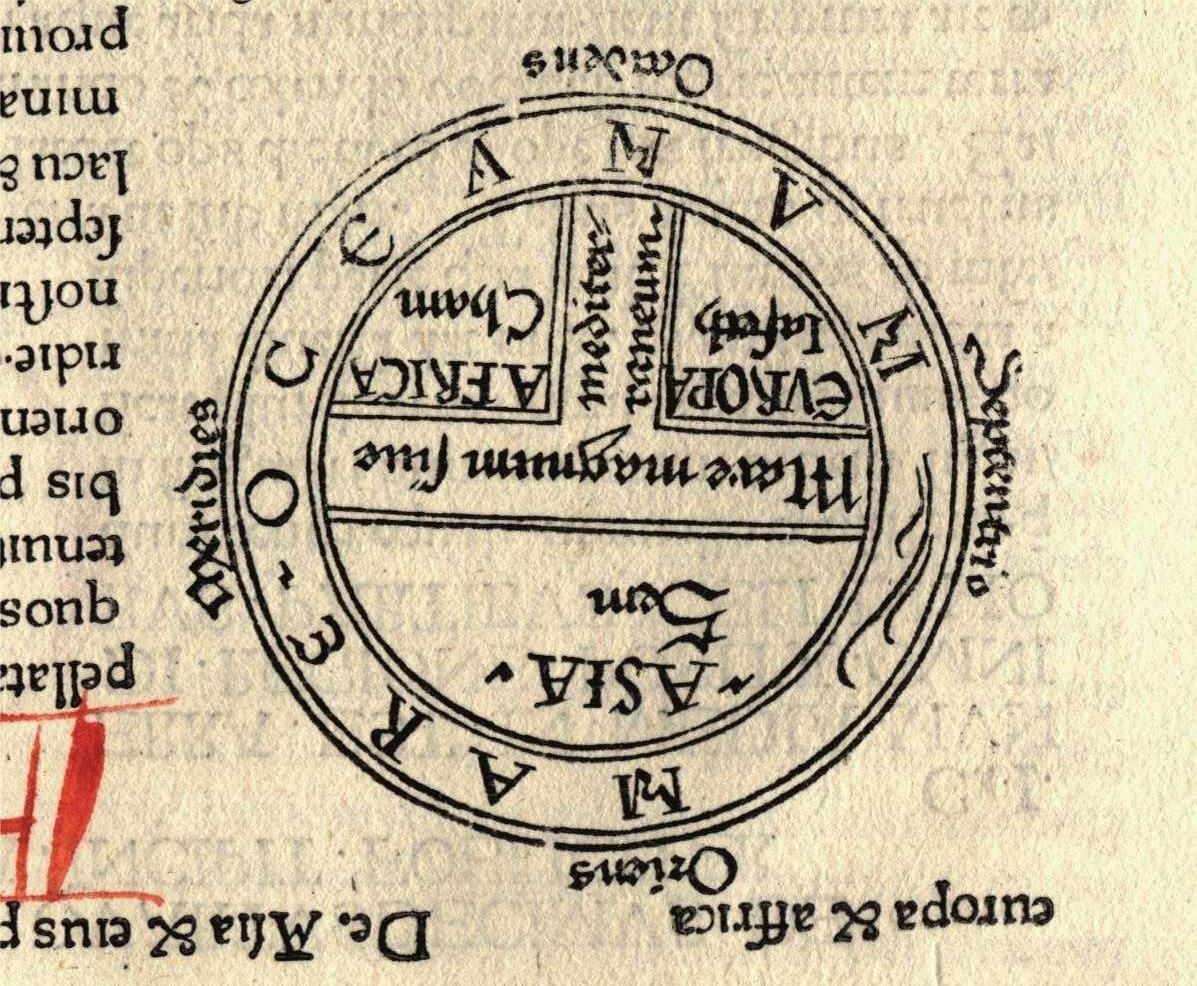 europa & affrica
De. Aſia & eius p
Oriens
MARE OCCEANVM
Septentrio
Meridies
ASIA
Sem
Mare magnum ſiue
mediter
raneum
EVROPA
Iafeth
AFRICA
Cham
Occidens
pellata
quos
tenuit
bis p
orien
ridie.
noſtr
ſepter
lacu &
mina
prouin